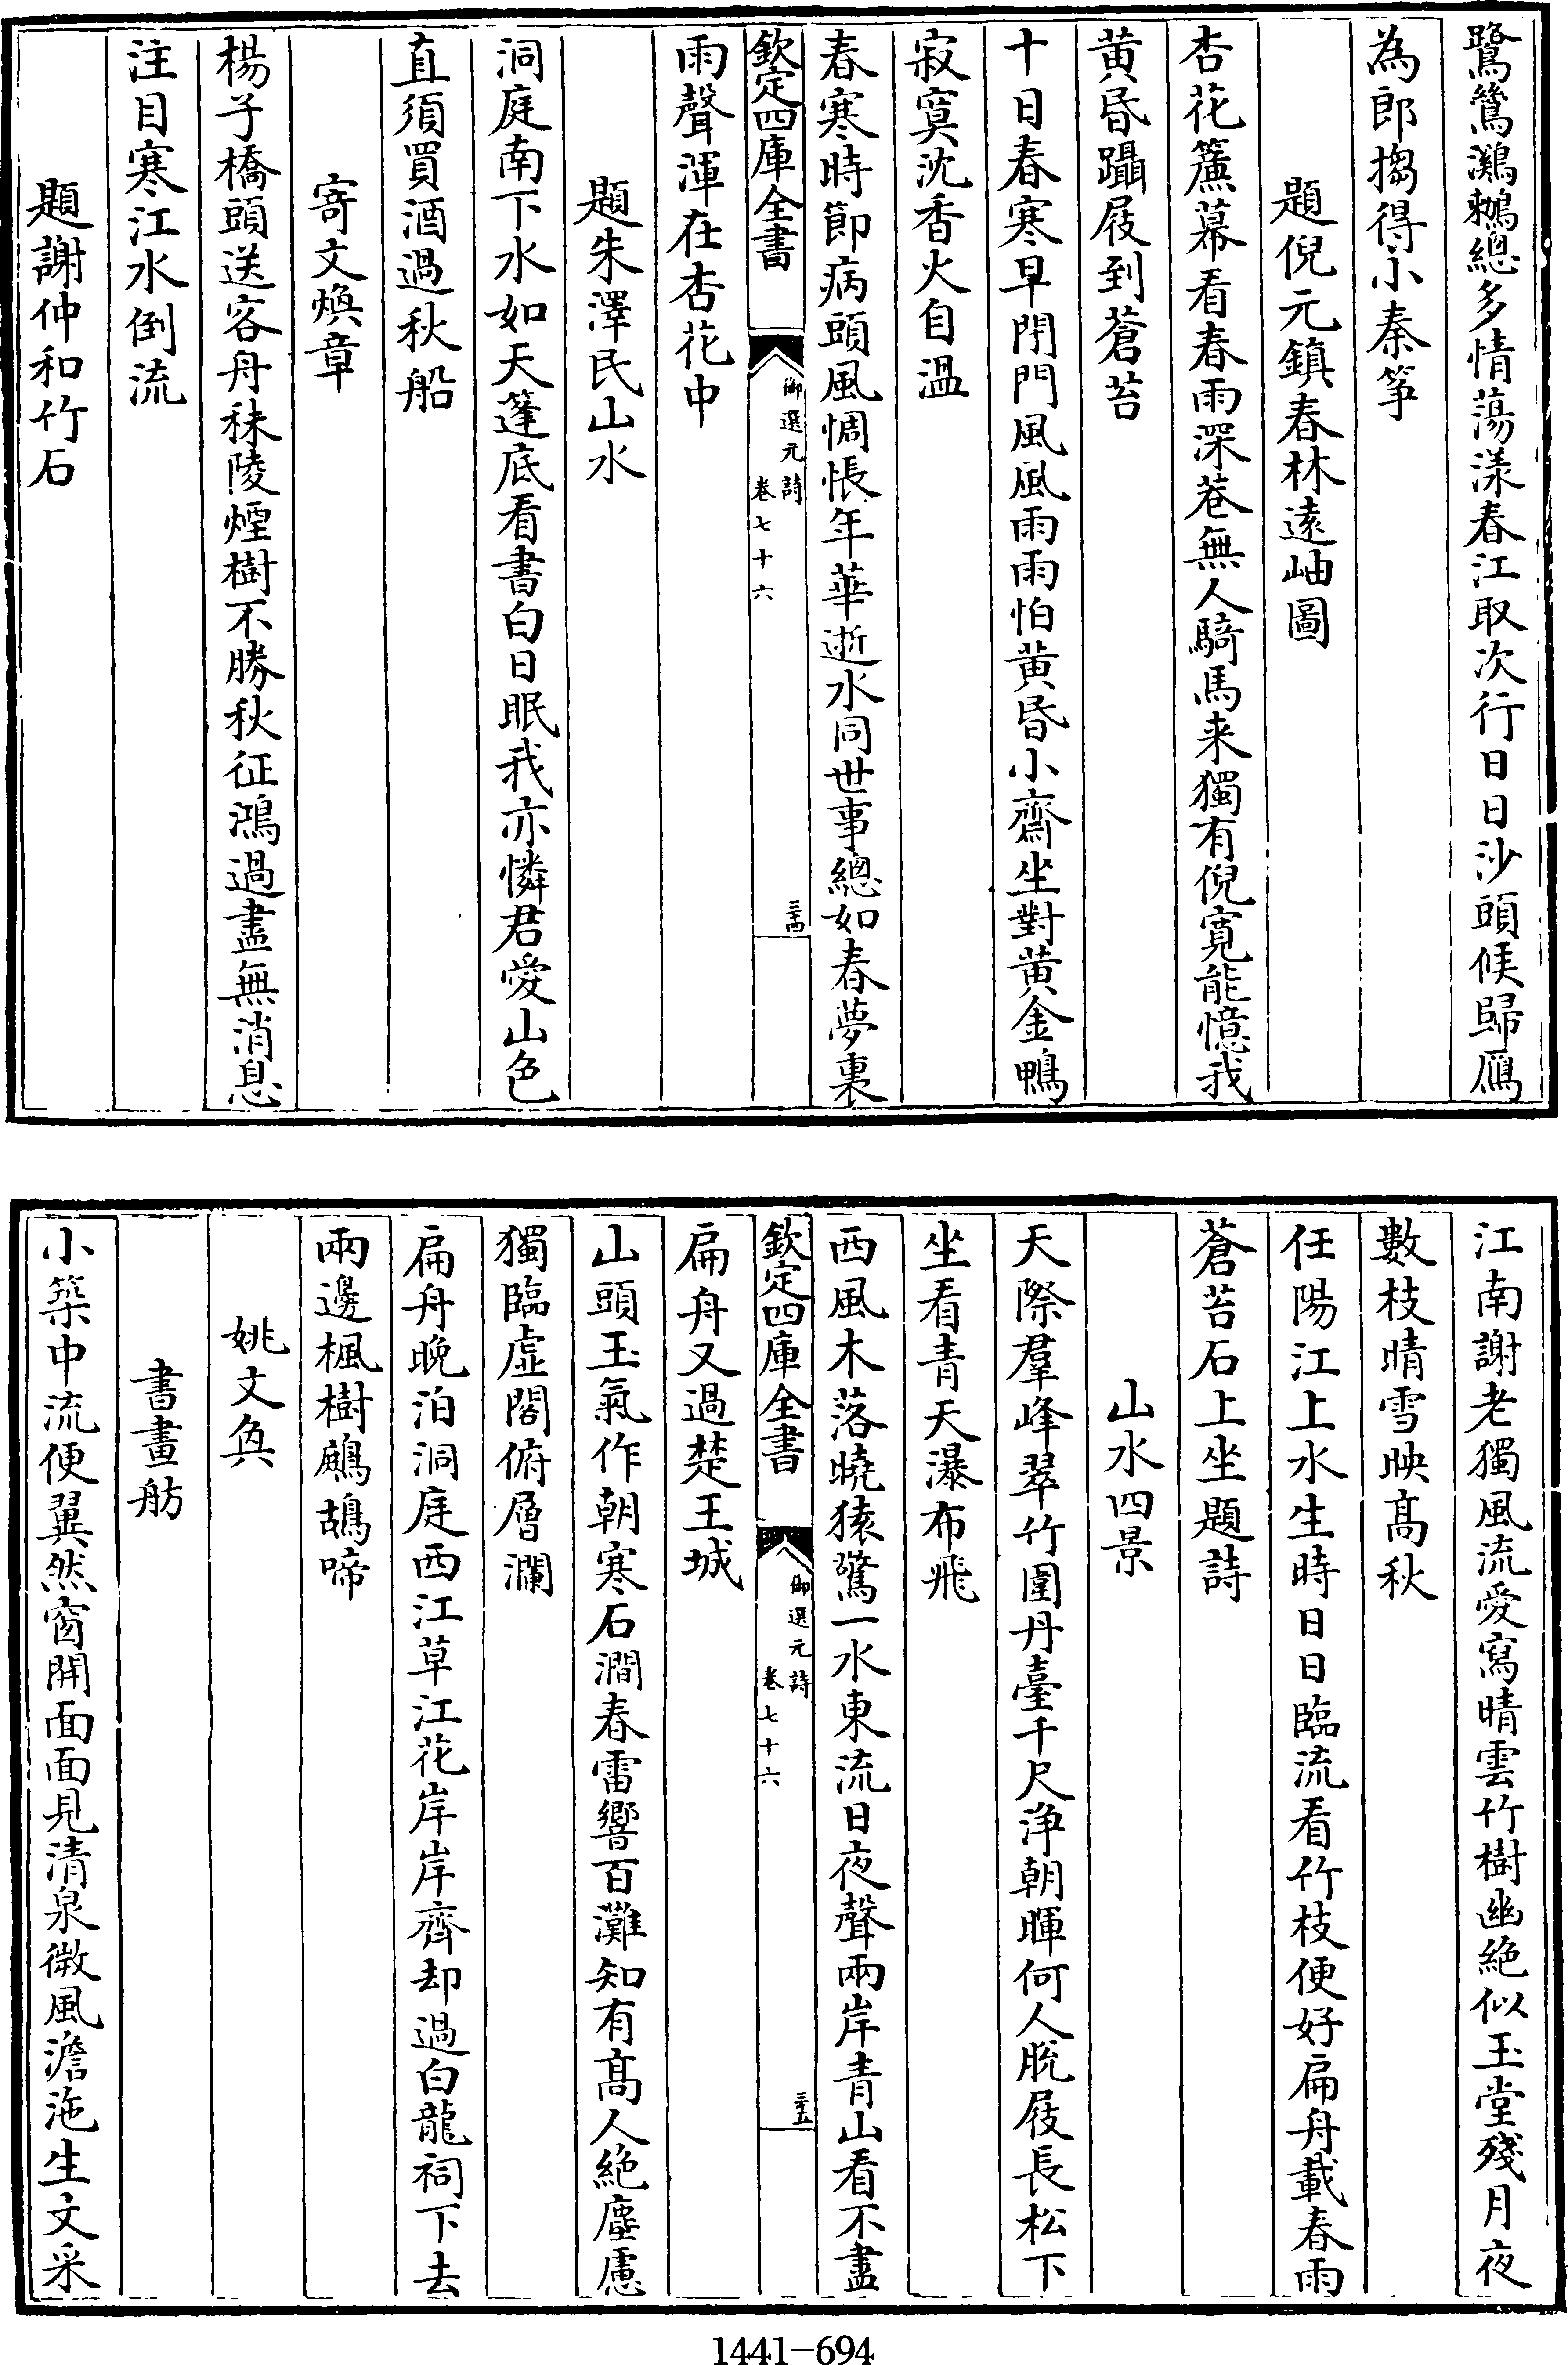 鷺鷥鸂鶒總多情蕩漾春江取次行日日沙頭候歸鴈
為郎搊得小秦筝
題倪元鎮春林遠岫圖
杏花簾幕看春雨深巷無人騎馬来獨有倪寛能憶我
黄昏躡屐到蒼苔
十日春寒早閉門風風雨雨怕黄昏小齋坐對黄金鴨
寂寞沈香火自温
春寒時節病頭風惆悵年華逝水同世事總如春夢裏
欽定四庫全書
御選元詩
卷七十六
三十四
雨聲渾在杏花中
題朱澤民山水
洞庭南下水如天篷底看書白日眠我亦憐君愛山色
直須買酒過秋船
寄文煥章
楊子橋頭送客舟秣陵煙樹不勝秋征鴻過盡無消息
注目寒江水倒流
題謝仲和竹石
江南謝老獨風流愛寫晴雲竹樹幽絶似玉堂殘月夜
數枝晴雪映髙秋
任陽江上水生時日日臨流看竹枝便好扁舟載春雨
蒼苔石上坐題詩
山水四景
天際羣峰翠竹圍丹臺千尺浄朝暉何人脱屐長松下
坐看青天瀑布飛
西風木落曉猿驚一水東流日夜聲兩岸青山看不盡
欽定四庫全書
御選元詩
卷七十六
三十五
扁舟又過楚王城
山頭玉氣作朝寒石澗春雷響百灘知有髙人絶塵慮
獨臨虚閣俯層瀾
扁舟晚泊洞庭西江草江花岸岸齊却過白龍祠下去
兩邊楓樹鷓鴣啼
姚文奐
書畫舫
小築中流便翼然窗開面面見清泉微風澹沲生文采
1441-694